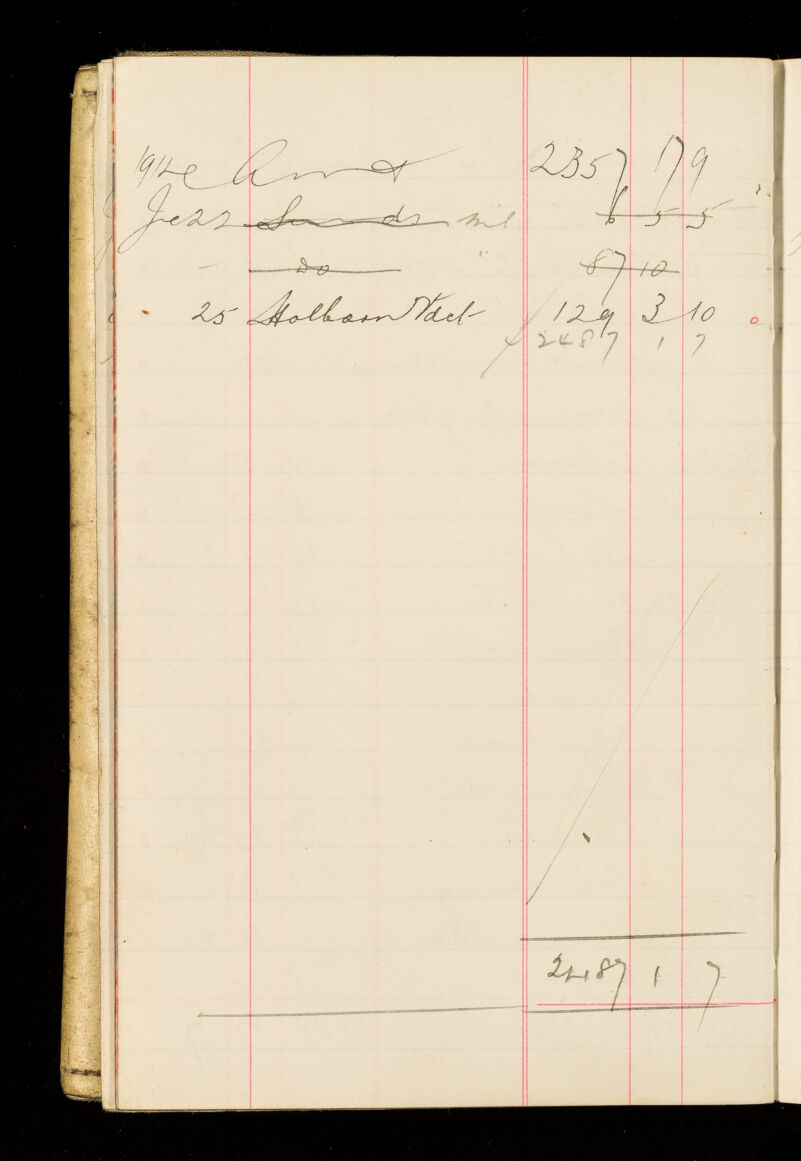 1914 Amt 2357 17 9
Sands 6 5 5
" do 87 10
25 Holborn Vdct 129 3 10
2487 1 7
2487 1 7